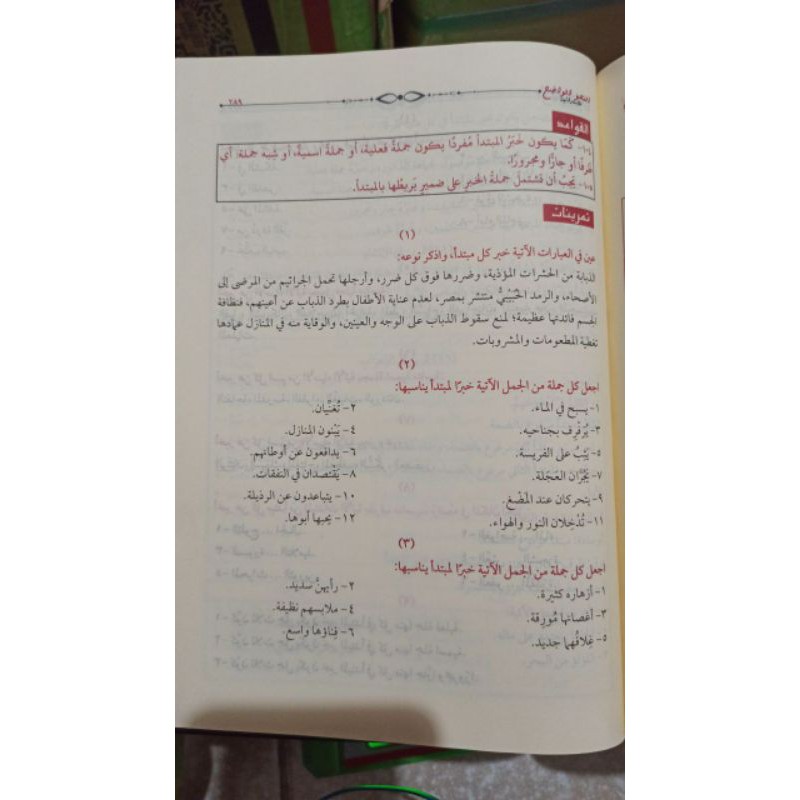 النحو الواضح
٢٨٩
القواعد
١٠٤- كَمَا يكون خَبَرُ المبتدأ مُفردًا يكون جملةً فعلية، أو جملةً اسميةً، أو شِبْهَ جملة: أي
ظرفًا أو جارًّا ومجرورًا.
١٠٥- يَجِبُ أن تشتملَ جملةُ الخبرِ على ضميرٍ يَربِطُها بالمبتدأ.
تمرينات
(١)
عين في العبارات الآتية خبر كل مبتدأ، واذكر نوعه:
الذبابة من الحشرات المؤذية، وضررها فوق كل ضرر، وأرجلها تحمل الجراثيم من المرضى إلى
الأصحاء، والرمد الحُبَيْبِيُّ منتشر بمصر، لعدم عناية الأطفال بطرد الذباب عن أعينهم، فنظافة
الجسم فائدتها عظيمة؛ لمنع سقوط الذباب على الوجه والعينين، والوقاية منه في المنازل عمادها
تغطية المطعومات والمشروبات.
(٢)
اجعل كل جملة من الجمل الآتية خبرًا لمبتدأ يناسبها:
١- يسبح في الماء. ٢- تُغَنِّيان.
٣- يُرَفْرِف بجناحيه. ٤- يَبْنُون المنازل.
٥- يَثِبُ على الفريسة. ٦- يدافعون عن أوطانهم.
٧- يَجُرَّان العَجَلة. ٨- يَقْتصدان في النفقات.
٩- يتحركان عند المَضْغ. ١٠- يتباعدون عن الرذيلة.
١١- تُدْخِلان النور والهواء. ١٢- يحبها أبوها.
(٣)
اجعل كل جملة من الجمل الآتية خبرًا لمبتدأ يناسبها:
١- أزهاره كثيرة. ٢- رأيهنَّ سَديد.
٣- أغصانها مُورِقة. ٤- ملابسهم نظيفة.
٥- غِلافُهما جديد. ٦- فِناؤها واسع.